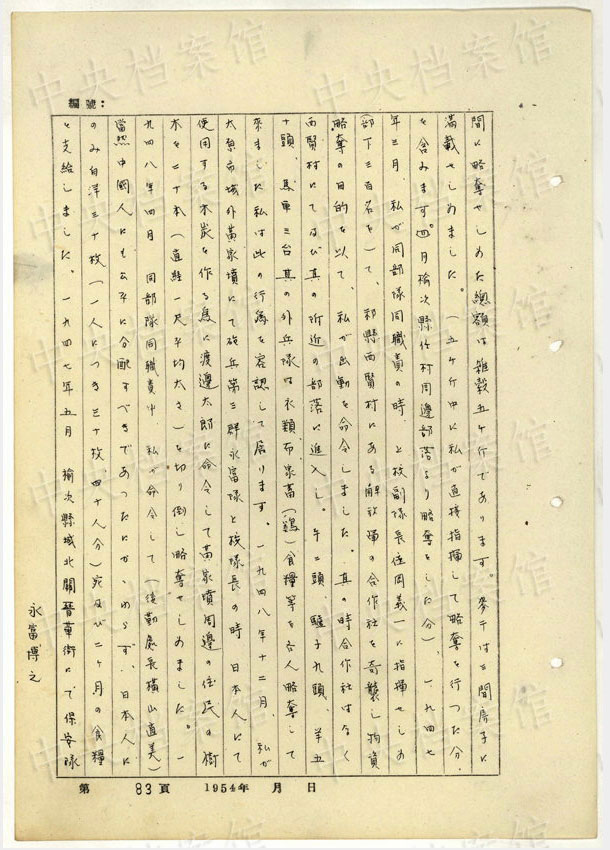 編號：
間に略奪せしめた總額は雑穀五千斤であります。麥千は三間房子に
満載せしめました。（五千斤中に私が直接指揮して略奪を行つた分、
を含みます。四月榆次縣什村周邊部落より略奪をした分）、一九四七
年三月、私が同部隊同職責の時、上校副隊長住岡義一に指揮せしめ
（部下三百名を）て、祁縣西賢村にある解放鄉の合作社を奇襲し物資
略奪の目的を以て、私が出動を命令しました。其の時合作社はなく
西賢村にて及び其の附近の部落に進入し。牛二頭、騾子九頭、羊五
十頭、馬車三台其の外兵隊は衣類布家畜（鶏）食糧等を各人略奪して
來ました私は此の行為を容認して居ります。一九四八年十二月、私が
太原市城外黄家墳にて砲兵第三群永富隊上校隊長の時、日本人にて
使用する木炭を作る為に渡邊太郎に命令して黄家墳周邊の住民の樹
木を二十本（直経一尺平均太さ）を切り倒し略奪せしめました。一
九四八年四月 同部隊同職責中 私が命令して（後勤處長横山直美）
當然中國人にも公平に分配すべきであつたにかゝわらず、日本人に
のみ白洋三十枚（一人につき三十枚、四十人分）宛及び二ヶ月の食糧
を支給しました。一九四七年五月 榆次縣城北關晉華街にて保安隊
永富博之
第 83頁 1954年 月 日
中央档案馆